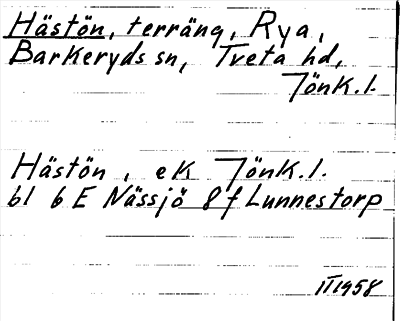 Hästön, terräng, Rya,
Barkeryds sn, Tveta hd,
Jönk.l.
Hästön, ek Jönk.l.
bl 6 E Nässjö 8 f Lunnestorp
II 1958